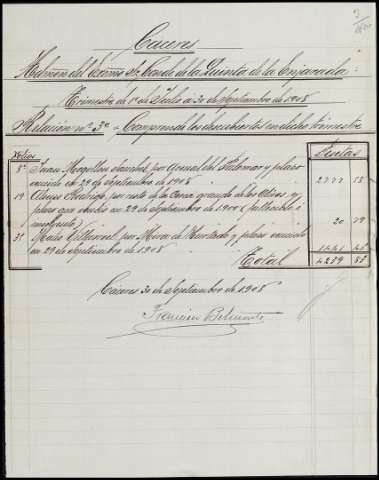 3
Cáceres
Admón del Excmo Sr Conde de la Quinta de la Enjarada:
Trimestre de 1º de Julio a 30 de Septiembre de 1908
Relación nº 3º Comprende los descubiertos en dicho trimestre
Folios
Pesetas
8º Juan Mogollon Sanchez por del Palomar y plazo
vencido en 29 de Septiembre de 1908 2777 55
19 por resto de la Corna grande de los Olivos y
plazo que venció en 29 de Septiembre de 190
20 79
31 Villarroel por de Hurtado y plazo vencido
en 29 de Septiembre de 1908 1441
Total 4239 88
Cáceres 30 de Septiembre de 1908
Francisco Belmonte